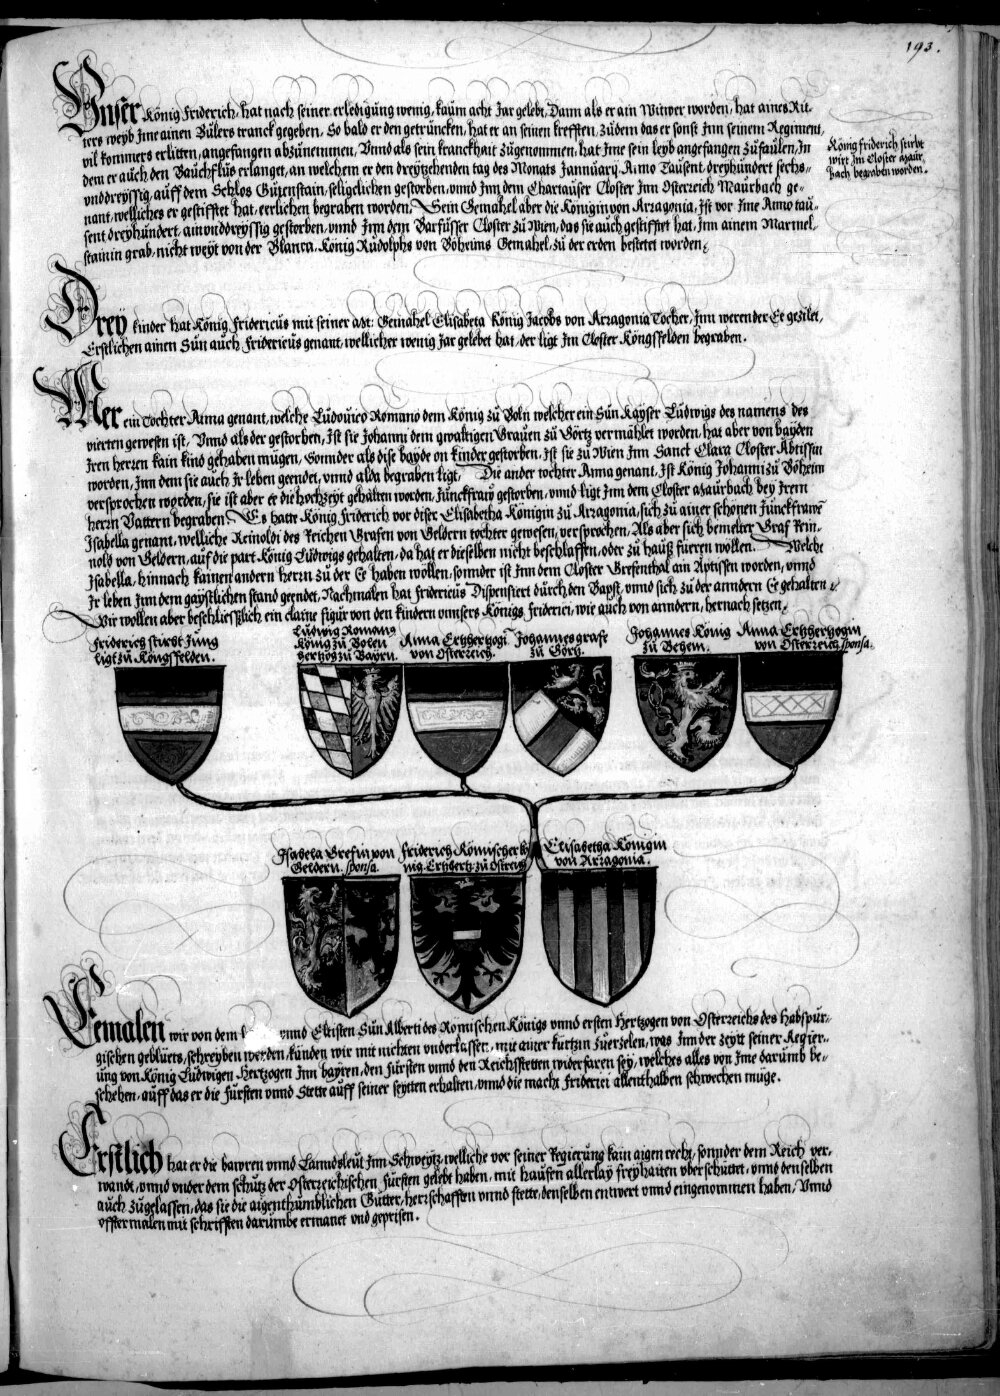 193.
Unser König Friderich, hat nach seiner erledigung wenig, kaum acht Jar gelebt, Dann als er ain Witwer worden, hat aines Rit-
ters weyb Jme ainen Bülers tranck gegeben, So bald er den getruncken, hat er an seinen krefften, zudem das er sonst Jnn seinem Regiment,
vil kommers erlitten, angefangen abzunemmen, Vnnd als sein kranckhait zugenommen, hat Jme sein leyb angefangen zufaülen, Jn
dem er auch den Bauchflus erlangt, an welchem er den dreytzehenden tag des Monats Jannuarÿ, Anno Tausent, dreyhundert sechs-
vnddreyssig, auff dem Schlos Gutenstain, seligclichen gestorben, vnnd Jnn dem Chartauser Closter Jnn Osterreich Maurbach ge-
nant, welliches er gestifftet hat, eerlichen begraben worden, Sein Gemahel aber die Königin von Arragonia, Jst vor Jme Anno tau-
sent dreyhundert, ainunddreyssig gestorben, vnnd Jnn dem Barfusser Closter zu Wien, das sie auch gestifftet hat, Jnn ainem Marmel,
stainin grab, nicht weyt von der Blanca, König Rudolphs von Böheims Gemahel, zu der erden bestetet worden,
König friderich stirbt
wirt Jm Closter Maur,
bach begraben worden.
Drey kinder hat König Fridericus mit seiner Gemahel Elisabeta König Jacobs von Arragonia Tochter, Jnn werender Ee gezilet,
Erstlichen ainen Sun auch Fridericus genant, wellicher wenig Jar gelebet hat, der ligt Jm Closter Königsfelden begraben.
Mer ein Tochter Anna genant, welche Ludouico Romano dem König zu Poln welcher ein Sun Kayser Ludwigs des namens des
vierten gewesen ist, Vnnd als der gestorben, Jst sie Johanni dem gwaltigen Grauen zu Görtz vermählet worden, hat aber von bayden
Jren herren kain kind gehaben mügen, Sonnder als dise bayde on kinder gestorben, Jst sie zu Wien Jnn Sanct Clara Closter Abtissin
worden, Jnn dem sie auch Jr leben geendet, vnnd alda begraben ligt, Die ander tochter Anna genant, Jst König Johanni zu Böheim
versprochen worden, sie ist aber ee die hochzeyt gehalten worden, Junckfraw gestorben, vnnd ligt Jnn dem Closter Maurbach bey Jrem
herrn Vattern begraben. Es hatte König Friderich vor diser Elisabetha Königin zu Arragonia, sich zu ainer schönen Junckfrawen
Jsabella genant, welliche Reinoldi des Reichen Grafen von Geldern tochter gewesen, versprochen, Als aber sich bemelter Graf Rein,
nold von Geldern, auf die part König Ludwigs gehalten, da hat er dieselben nicht beschlaffen, oder zu hauß fueren wollen. Welche
Jsabella, hinnach kainen andern herrn zu der Ee haben wollen, sonnder ist Jnn dem Closter Gresenthal ain Aptissen worden, vnnd
Jr leben Jnn dem gaystlichen stand geendet, Nachmalen hat Fridericus Dispensiert durch den Bapst, vnnd sich zu der anndern Ee gehalten.
Wir wollen aber beschließlich ein claine figur von den kindern vnnsers Königs friderici, wie auch von anndern, hernach setzen.
Friderich stirbt Jung
ligt zu Königsfelden.
Ludwig Romanus
König zu Polen
hertzog zu Bayrn.
Anna Ertzhertzogi
von Osterreich.
Johannes grafe
zu Görtz.
Johannes König
zu Behem.
Anna Ertzhertzogin
von Osterreich, sponsa.
Jsabela Grefin von
Geldern. sponsa.
Friderich Römischer kö
nig Ertzhertz. zu Ostreich
Elisabetha Königin
von Arragonia.
Gemalen wir von dem vnnd Eltisten Sun Alberti des Römischen Königs vnnd ersten Hertzogen von Osterreichs des Habspur-
gischen gebluets, schreyben werden, künden wir mit nichten vnderlassen, mit ainer kurtzin zuerzelen, was Jnn der zeyt seiner Regier-
ung von König Ludwigen Hertzogen Jnn bayren, den fürsten vnnd den Reichsstetten widerfaren sey, welches alles von Jme darumb be-
schehen, auff das er die Fürsten vnnd Stette auff seiner seytten erhalten, vnnd die macht Friderici allenthalben schwechen müge.
Erstlich hat er die bawren vnnd Lanndsleut Jnn Schweytz, welliche vor seiner Regierung kain aigen recht, sonnder dem Reich ver-
wandt, vnnd vnder dem schutz der Osterreichischen, fürsten gelebt haben, mit hauffen allerlay freyhaiten vberschüttet, vnnd denselben
auch zugelassen, das sie die aigenthumblichen Gütter, herrschafften vnnd stette, denselben entwert vnnd eingenommen haben, Vnnd
offtermalen mit schrifften darumbe ermanet vnd geprisen.